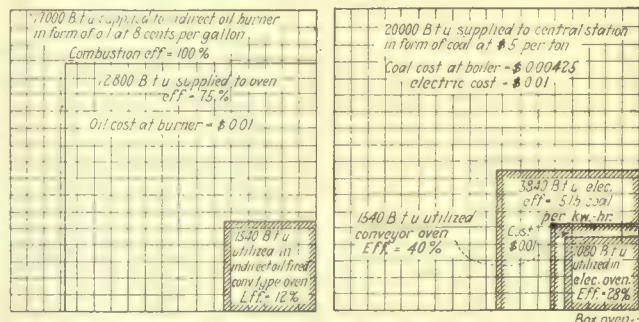 17000 B t u supplied to indirect oil burner
in form of oil at 8 cents per gallon
Combustion eff = 100 %
12800 B t u supplied to oven
eff = 75 %
Oil cost at burner = $ 0.01
1540 B t u
utilized in
indirect oil fired
conv type oven
Eff. = 12 %
20000 B t u supplied to central station
in form of coal at $ 5 per ton
Coal cost at boiler = $ 0.00425
electric cost = $ 0.01
3840 B t u elec.
eff = 5 lb coal
per kw.-hr.
Cost
$0.01
1540 B t u utilized
conveyor oven
Eff. = 40 %
1080 B t u
utilized in
elec. oven.
Eff. = 28%
Box oven